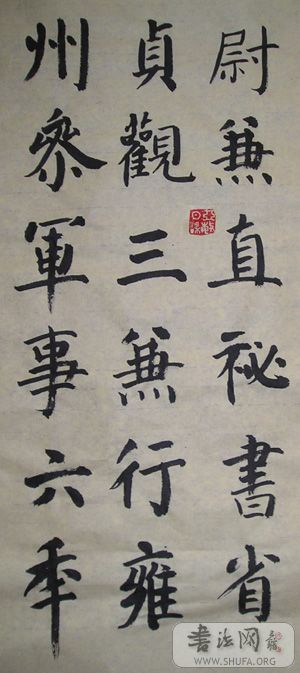 尉兼直祕書省
貞觀三兼行雍
州叅軍事六年
書法网
WWW.SHUFA.ORG